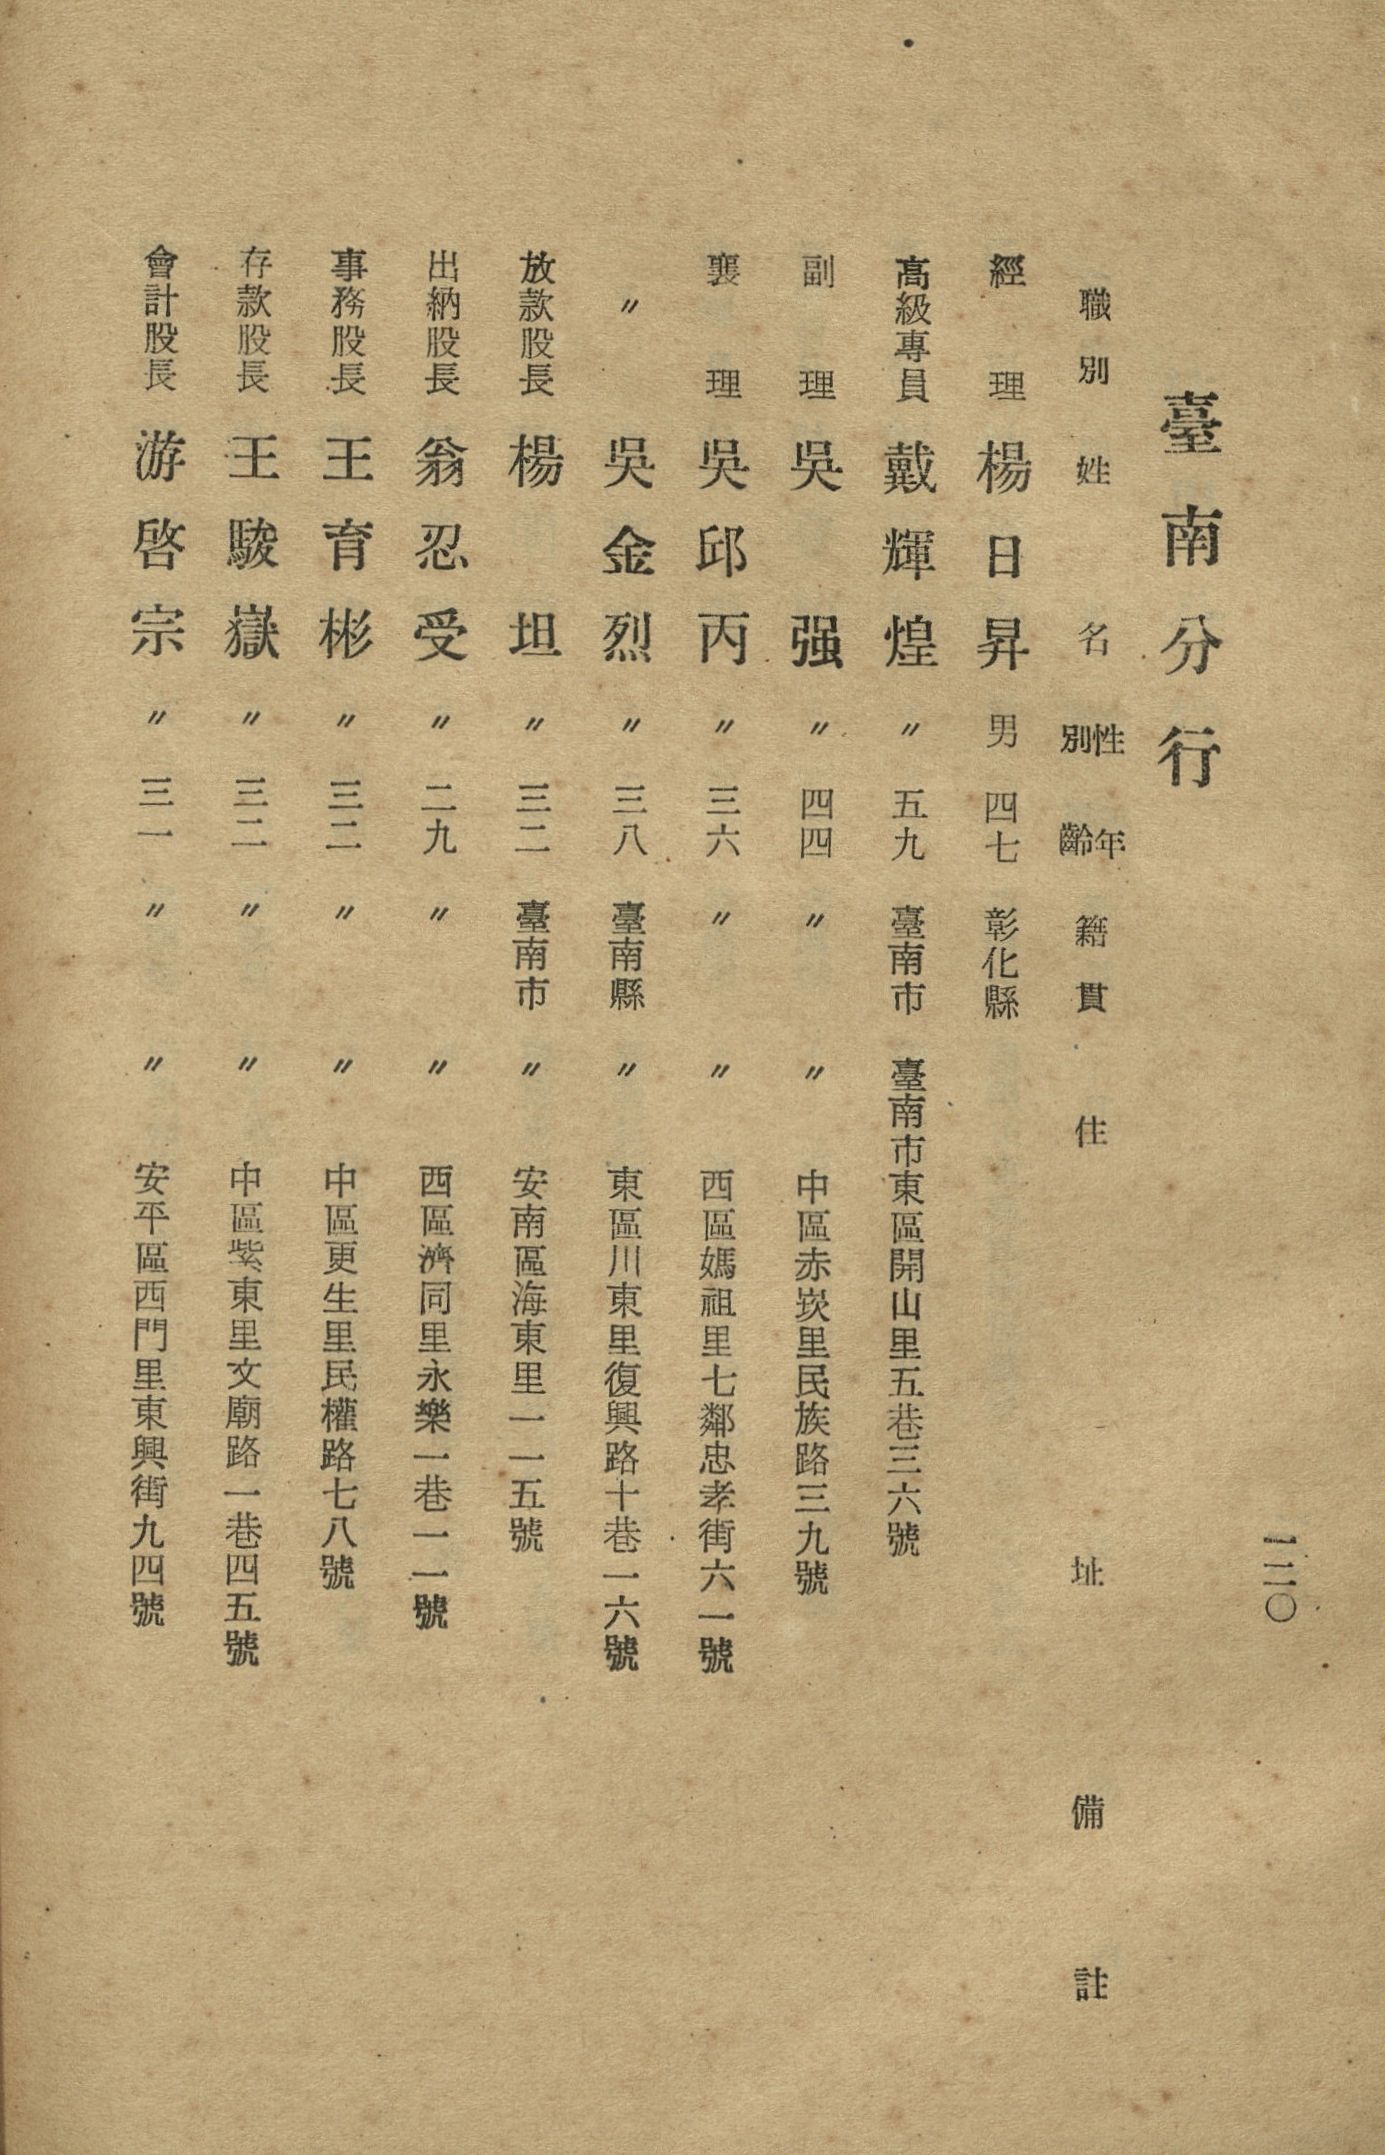 一二〇
臺南分行
職別 姓名 性別 年齡 籍貫 住址 備註
經理 楊日昇 男 四七 彰化縣
高級專員 戴輝煌 〃 五九 臺南市 臺南市東區開山里五巷三六號
副理 吳强 〃 四四 〃 〃 中區赤崁里民族路三九號
襄理 吳邱丙 〃 三六 〃 〃 西區媽祖里七鄰忠孝街六一號
〃 吳金烈 〃 三八 臺南縣 〃 東區川東里復興路十巷一六號
放款股長 楊坦 〃 三二 臺南市 〃 安南區海東里一一五號
出納股長 翁忍受 〃 二九 〃 〃 西區濟同里永樂一巷一一號
事務股長 王育彬 〃 三二 〃 〃 中區更生里民權路七八號
存款股長 王駿嶽 〃 三二 〃 〃 中區紫東里文廟路一巷四五號
會計股長 游啓宗 〃 三一 〃 〃 安平區西門里東興街九四號